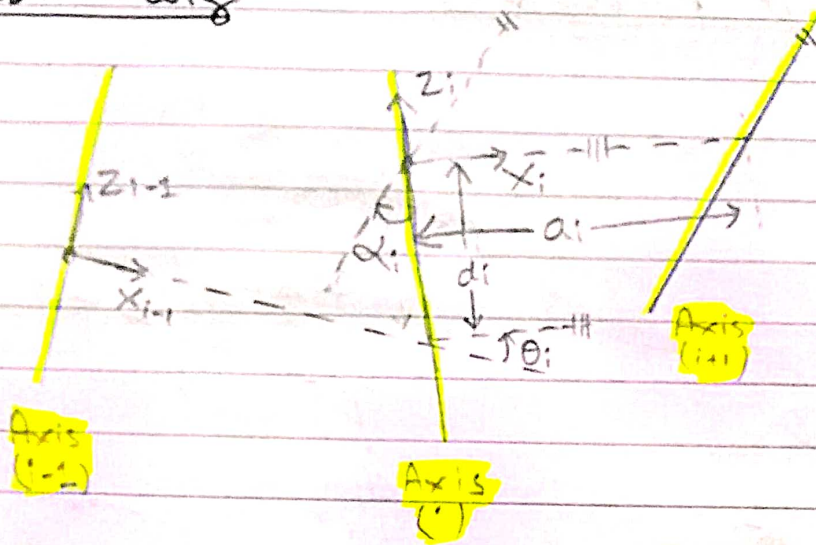 Zᵢ
Zᵢ₋₁
Xᵢ
aᵢ
αᵢ
dᵢ
Xᵢ₋₁
θᵢ
Axis
(i+1)
Axis
(i-1)
Axis
(i)